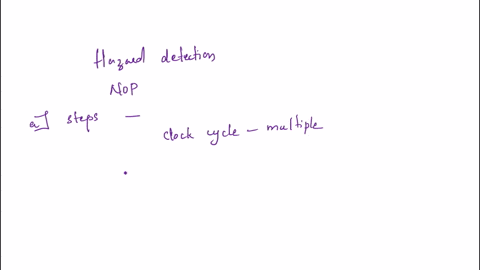 Hazard detection
NOP
a] steps —
clock cycle - multiple